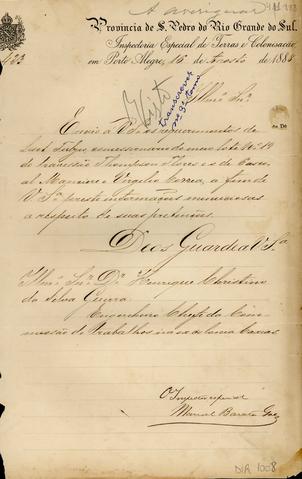 A averiguar
Provincia de S. Pedro do Rio Grande do Sul.
Inspectoria Especial de Terras e Colonisação
em Porto Alegre, 15 de Agosto de 1885
Illmo Snr.
Envio a V. S. os requerimentos de
concessionario de meio lote nº 19
de Thompson Flores e de
al Marques e Virgilio Correa, a fim de
V. Sª preste informações minuciosas
a respeito de suas pretenções.
Deos Guarde a V. Sª
Illmo Snr. Dr. Henrique Christino
da Silva Guerra
Engenheiro Chefe da Com-
missão de trabalhos na ex colonia Caxias
O Inspector especial
Manoel Barata Goes
DIR 1008